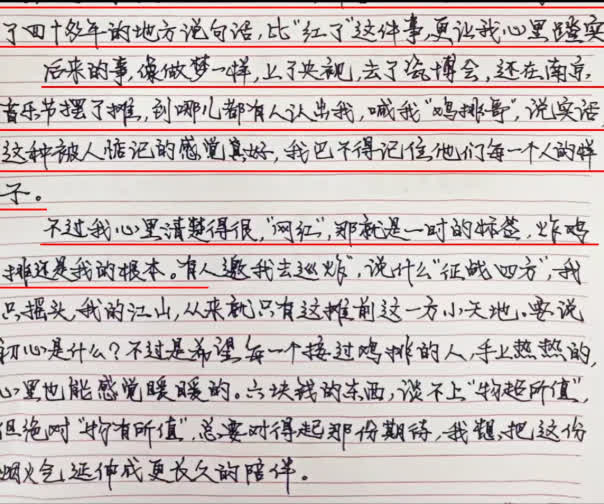 了四十多年的地方说句话，比“红了”这件事，更让我心里踏实
后来的事，像做梦一样，上了央视，去了瓷博会，还在南京
音乐节摆了摊，到哪儿都有人认出我，喊我“鸡排哥”，说实话，
这种被人惦记的感觉真好，我巴不得记住他们每一个人的样
子。
不过我心里清楚得很，“网红”，那就是一时的标签，炸鸡
排还是我的根本。有人邀我去巡炸”，说什么“征战四方”，我
只摇头，我的江山，从来就只有这摊前这一方小天地。要说
初心是什么？不过是希望每一个接过鸡排的人，手上热热的，
心里也能感觉暖暖的。六块钱的东西，谈不上“物超所值”，
但绝对“物有所值”，总要对得起那份期待，我想，把这份
烟火气延伸成更长久的陪伴。